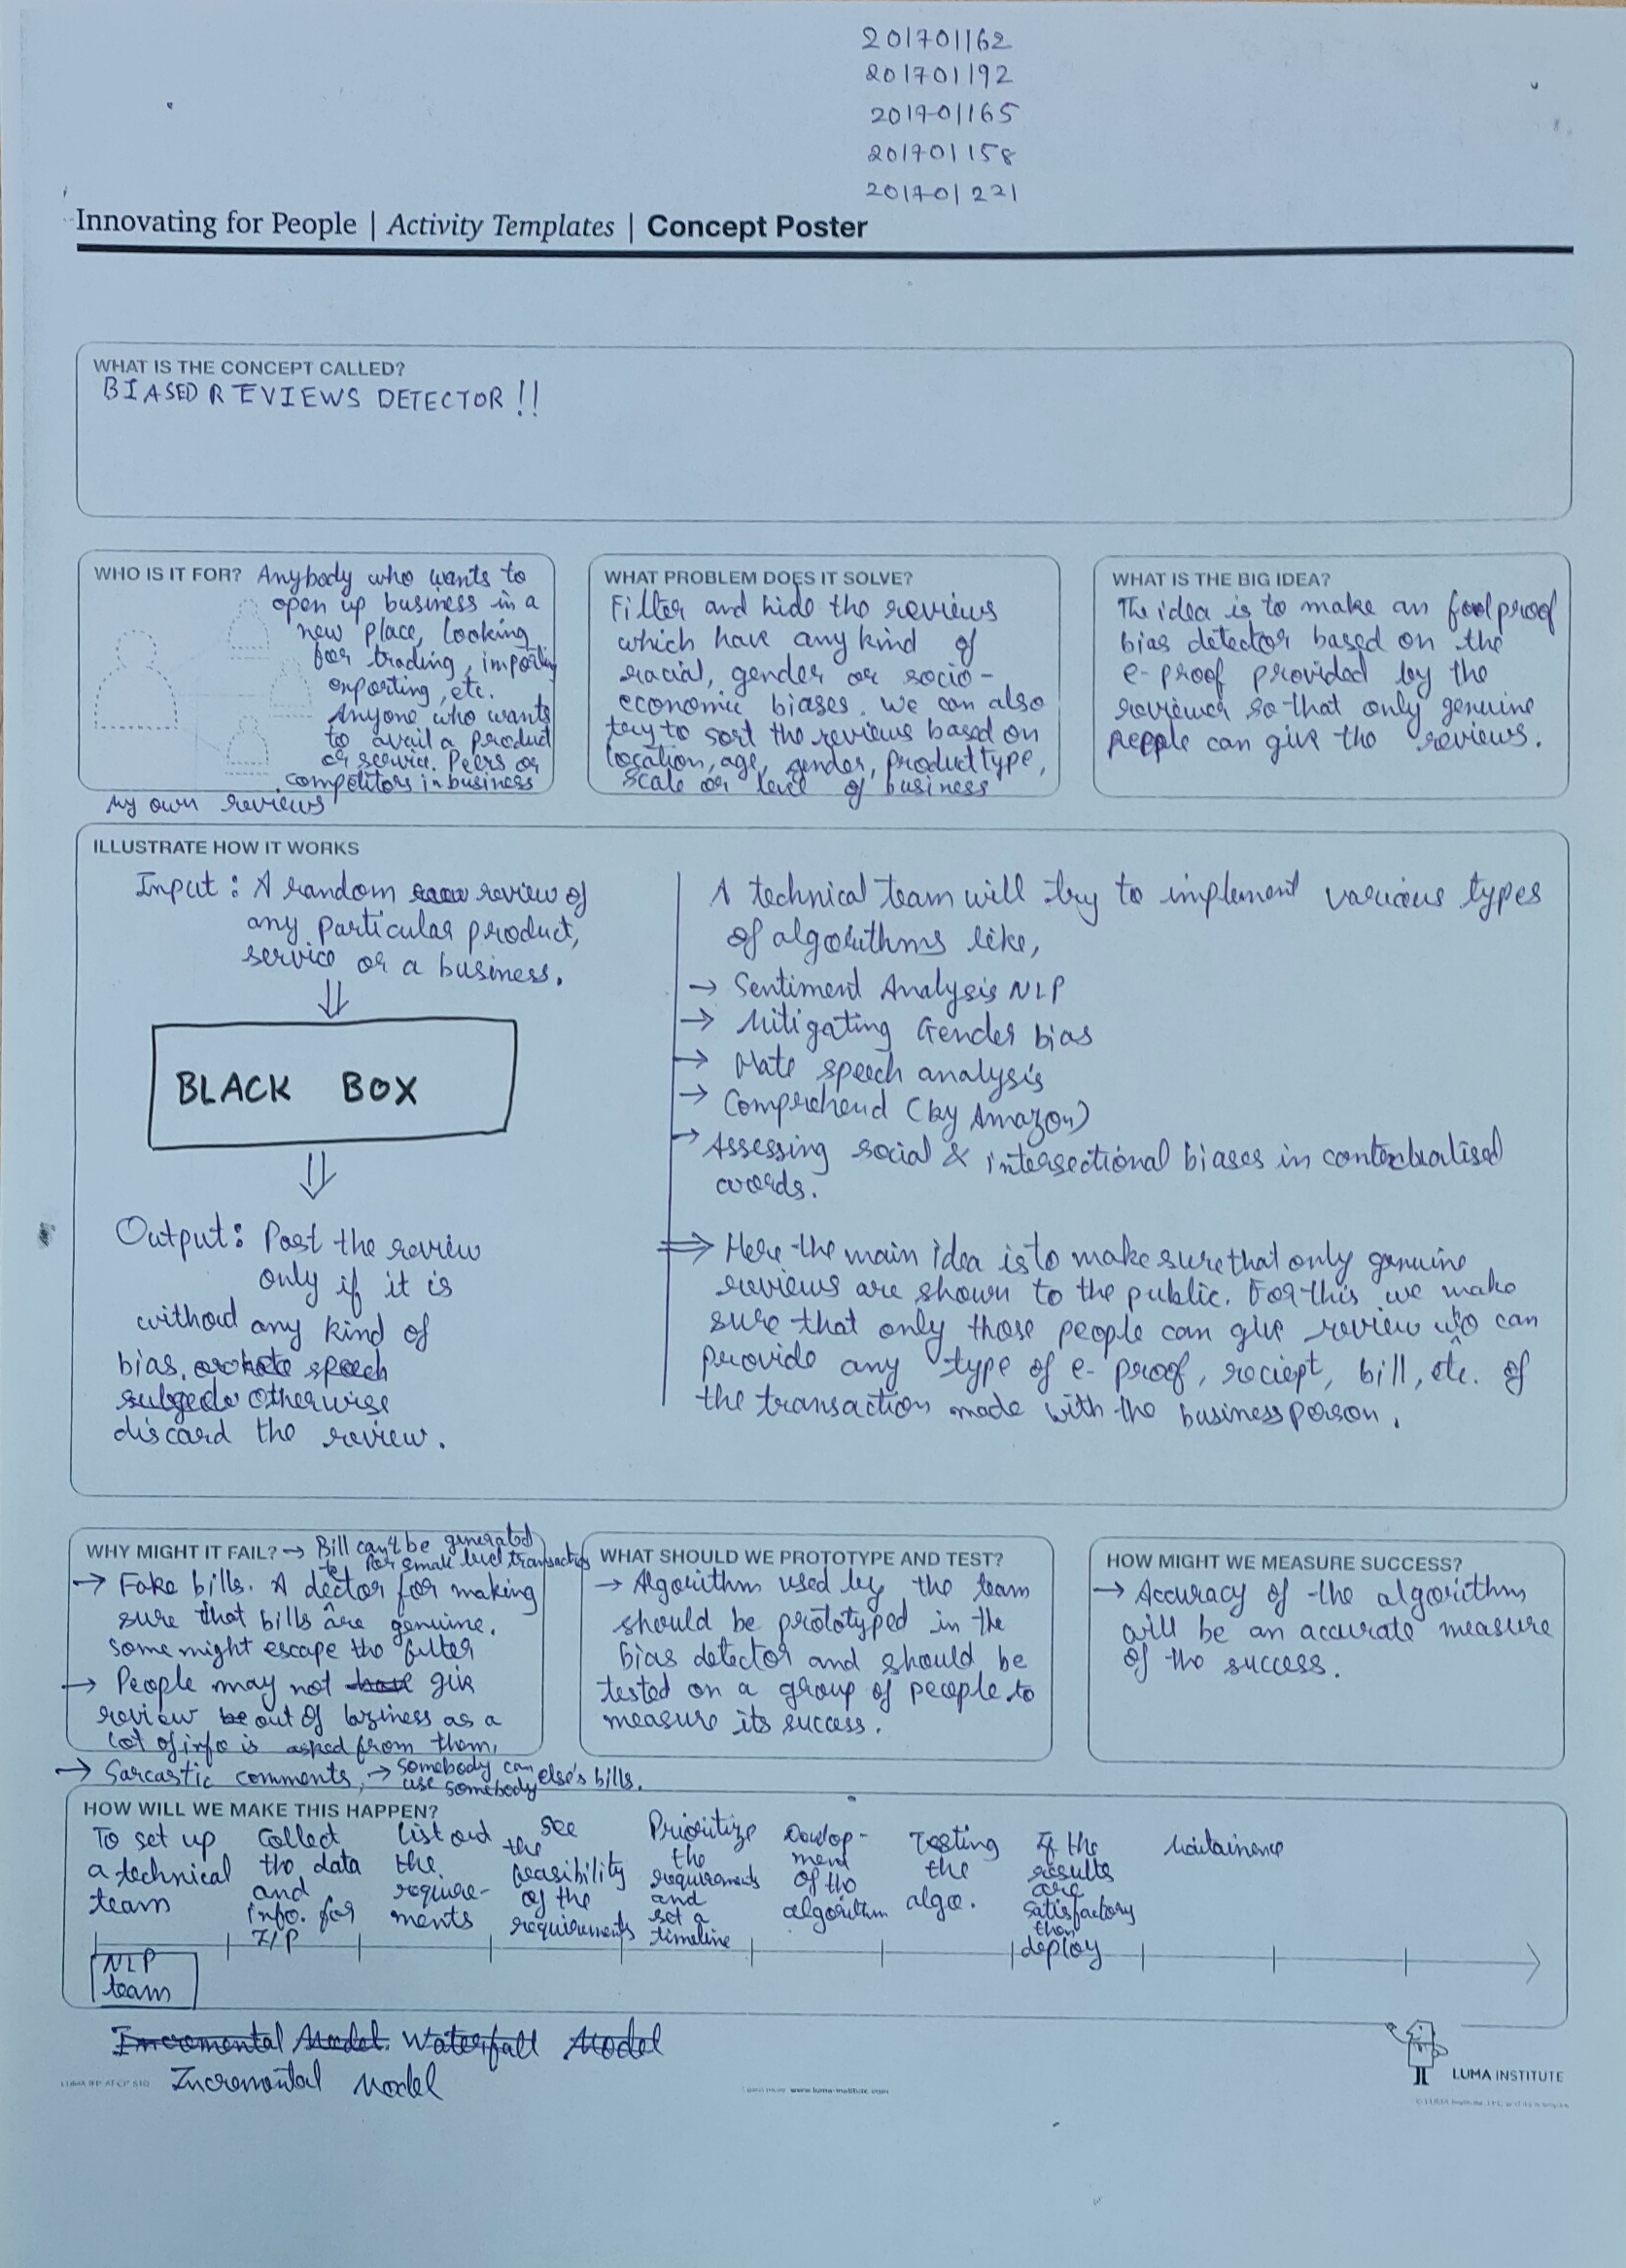 201701162
201701192
201701165
201701158
201701221
Innovating for People | Activity Templates | Concept Poster
WHAT IS THE CONCEPT CALLED?
BIASED REVIEWS DETECTOR!!
WHO IS IT FOR? Anybody who wants to
open up business in a
new place, looking
for trading, importing
exporting, etc.
Anyone who wants
to avail a product
or service. Peers or
competitors in business
my own reviews
WHAT PROBLEM DOES IT SOLVE?
Filter and hide the reviews
which have any kind of
racial, gender or socio-
economic biases. We can also
try to sort the reviews based on
location, age, gender, product type,
scale or level of business
WHAT IS THE BIG IDEA?
The idea is to make an foolproof
bias detector based on the
e-proof provided by the
reviewer so that only genuine
people can give the reviews.
ILLUSTRATE HOW IT WORKS
Input: A random review of
any particular product,
service or a business.
⇓
BLACK BOX
⇓
Output: Post the review
only if it is
without any kind of
bias, or hate speech
otherwise
discard the review.
A technical team will try to implement various types
of algorithms like,
→ Sentiment Analysis NLP
→ Mitigating Gender bias
→ Hate speech analysis
→ Comprehend (by Amazon)
→ Assessing social & intersectional biases in contextualised
words.
⇒ Here the main idea is to make sure that only genuine
reviews are shown to the public. For this we make
sure that only those people can give review who can
provide any type of e-proof, reciept, bill, etc. of
the transaction made with the business person.
WHY MIGHT IT FAIL? → Bill can't be generated
for small level transaction
→ Fake bills. A dector for making
sure that bills are genuine.
some might escape the filter
→ People may not have give
review out of laziness as a
lot of info is asked from them.
→ Sarcastic comments, → Somebody can
use somebody else's bills.
WHAT SHOULD WE PROTOTYPE AND TEST?
→ Algorithm used by the team
should be prototyped in the
bias detector and should be
tested on a group of people to
measure its success.
HOW MIGHT WE MEASURE SUCCESS?
→ Accuracy of the algorithm
will be an accurate measure
of the success.
HOW WILL WE MAKE THIS HAPPEN?
To set up
a technical
team
NLP
team
Collect
the data
and
info. for
I/P
List out
the
require-
ments
see
the
feasibility
of the
requirements
Prioritize
the
requirements
and
set a
timeline
Develop-
ment
of the
algorithm
Testing
the
algo.
If the
results
are
satisfactory
then
deploy
Maintainence
Incremental Model. Waterfall Model
Incremental Model
www.luma-institute.com
LUMA INSTITUTE